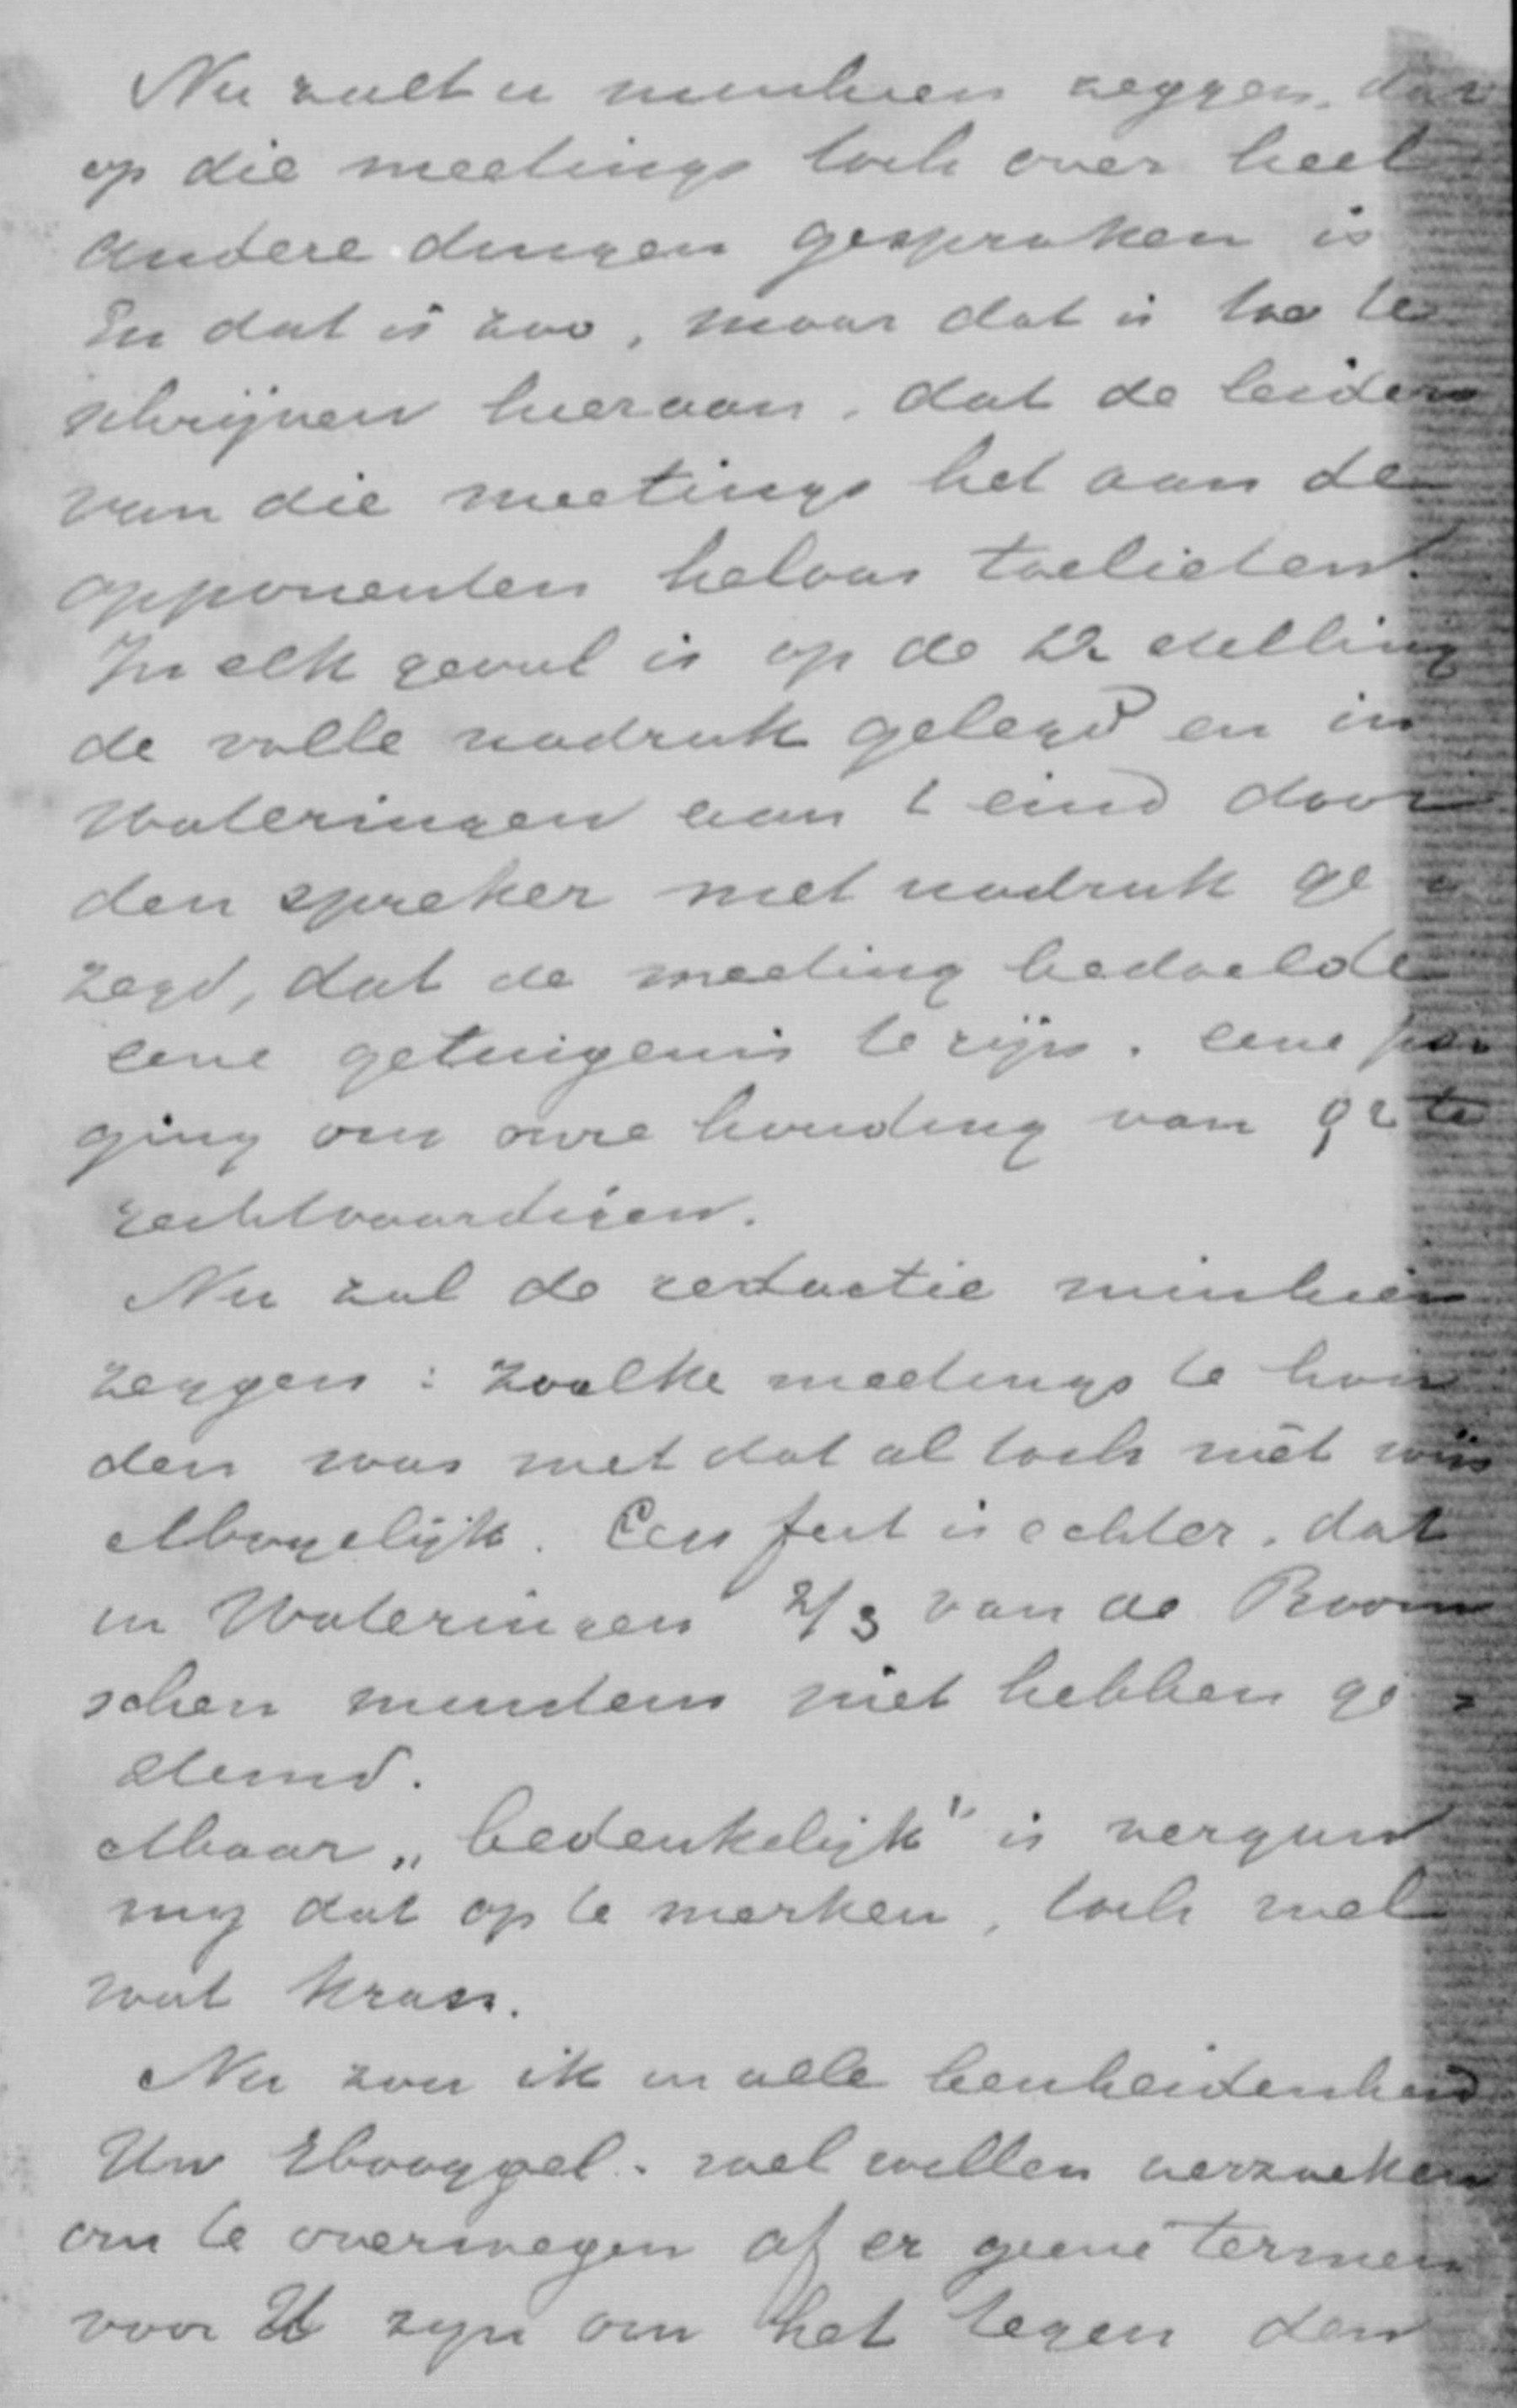 Nu zult u misschien zeggen, dat
op die meetings toch over heel
andere dingen gesproken is
En dat is zoo, maar dat is toe te
schrijven hieraan, dat de leiders
van die meetings het aan de
opponenten helaas toelieten.
In elk geval is op de stelling
de volle nadruk gelegd en in
Wateringen aan 't eind door
den spreker met nadruk ge
zegd, dat de meeting bedoelde
eene getuigenis te zijn. eene po
ging om onze houding van te
rechtvaardigen.
Nu zal de redactie misschien
zeggen: zoolke meetings te hou
den was met dat al toch niet wijs
Mogelijk. Een feit is echter, dat
in Wateringen 2/3 van de Room
schen minstens niet hebben ge=
stemd.
Maar „bedenkelijk" is vergun
mij dat op te merken, toch wel
wat kras.
Nu zou ik in alle bescheidenheid
Uw Hooggel. wel willen verzoeken
om te overwegen of er geene termen
voor U zijn om het tegen den